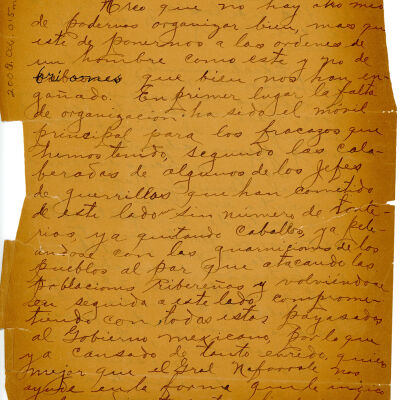 Creo que no hay otro me
de podernos organizar bien, mas que
este de ponernos a las ordenes de
un hombre como este y no de
bribones que bien nos han en-
gañado. En primer lugar la falta
de organizacion, ha sido el móvil
principal para los fracazos que
hemos tenido, segundo las cala-
beradas de algunos de los jefes
de guerrillas que han cometido
de este lado sin numero de tonte-
rias, ya quitando caballos, ya pele-
andose con las guarniciones de los
pueblos al par que atacando las
Poblaciones Ribereñas y volviendose
en seguida a este lado, comprome-
tiendo con todas estas payasadas
al Gobierno mexicano, Por lo que
ya cansado de tanto enredo, quise
mejor que el Gral Nafarrate nos
ayude en la forma que le indico
2009.04.015